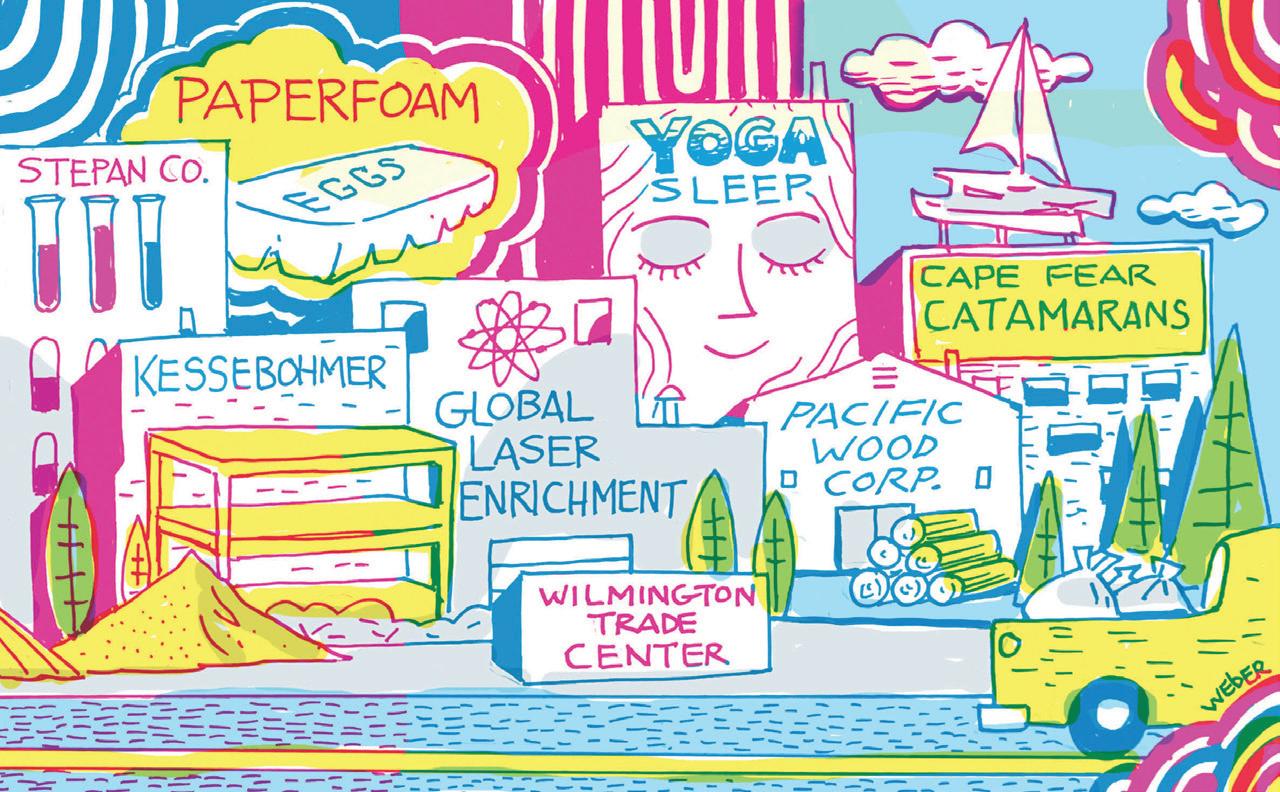 PAPERFOAM
EGGS
STEPAN CO.
YOGA
SLEEP
CAPE FEAR
CATAMARANS
KESSEBOHMER
GLOBAL
LASER
ENRICHMENT
PACIFIC
WOOD
CORP.
WILMINGTON
TRADE
CENTER
WEbER